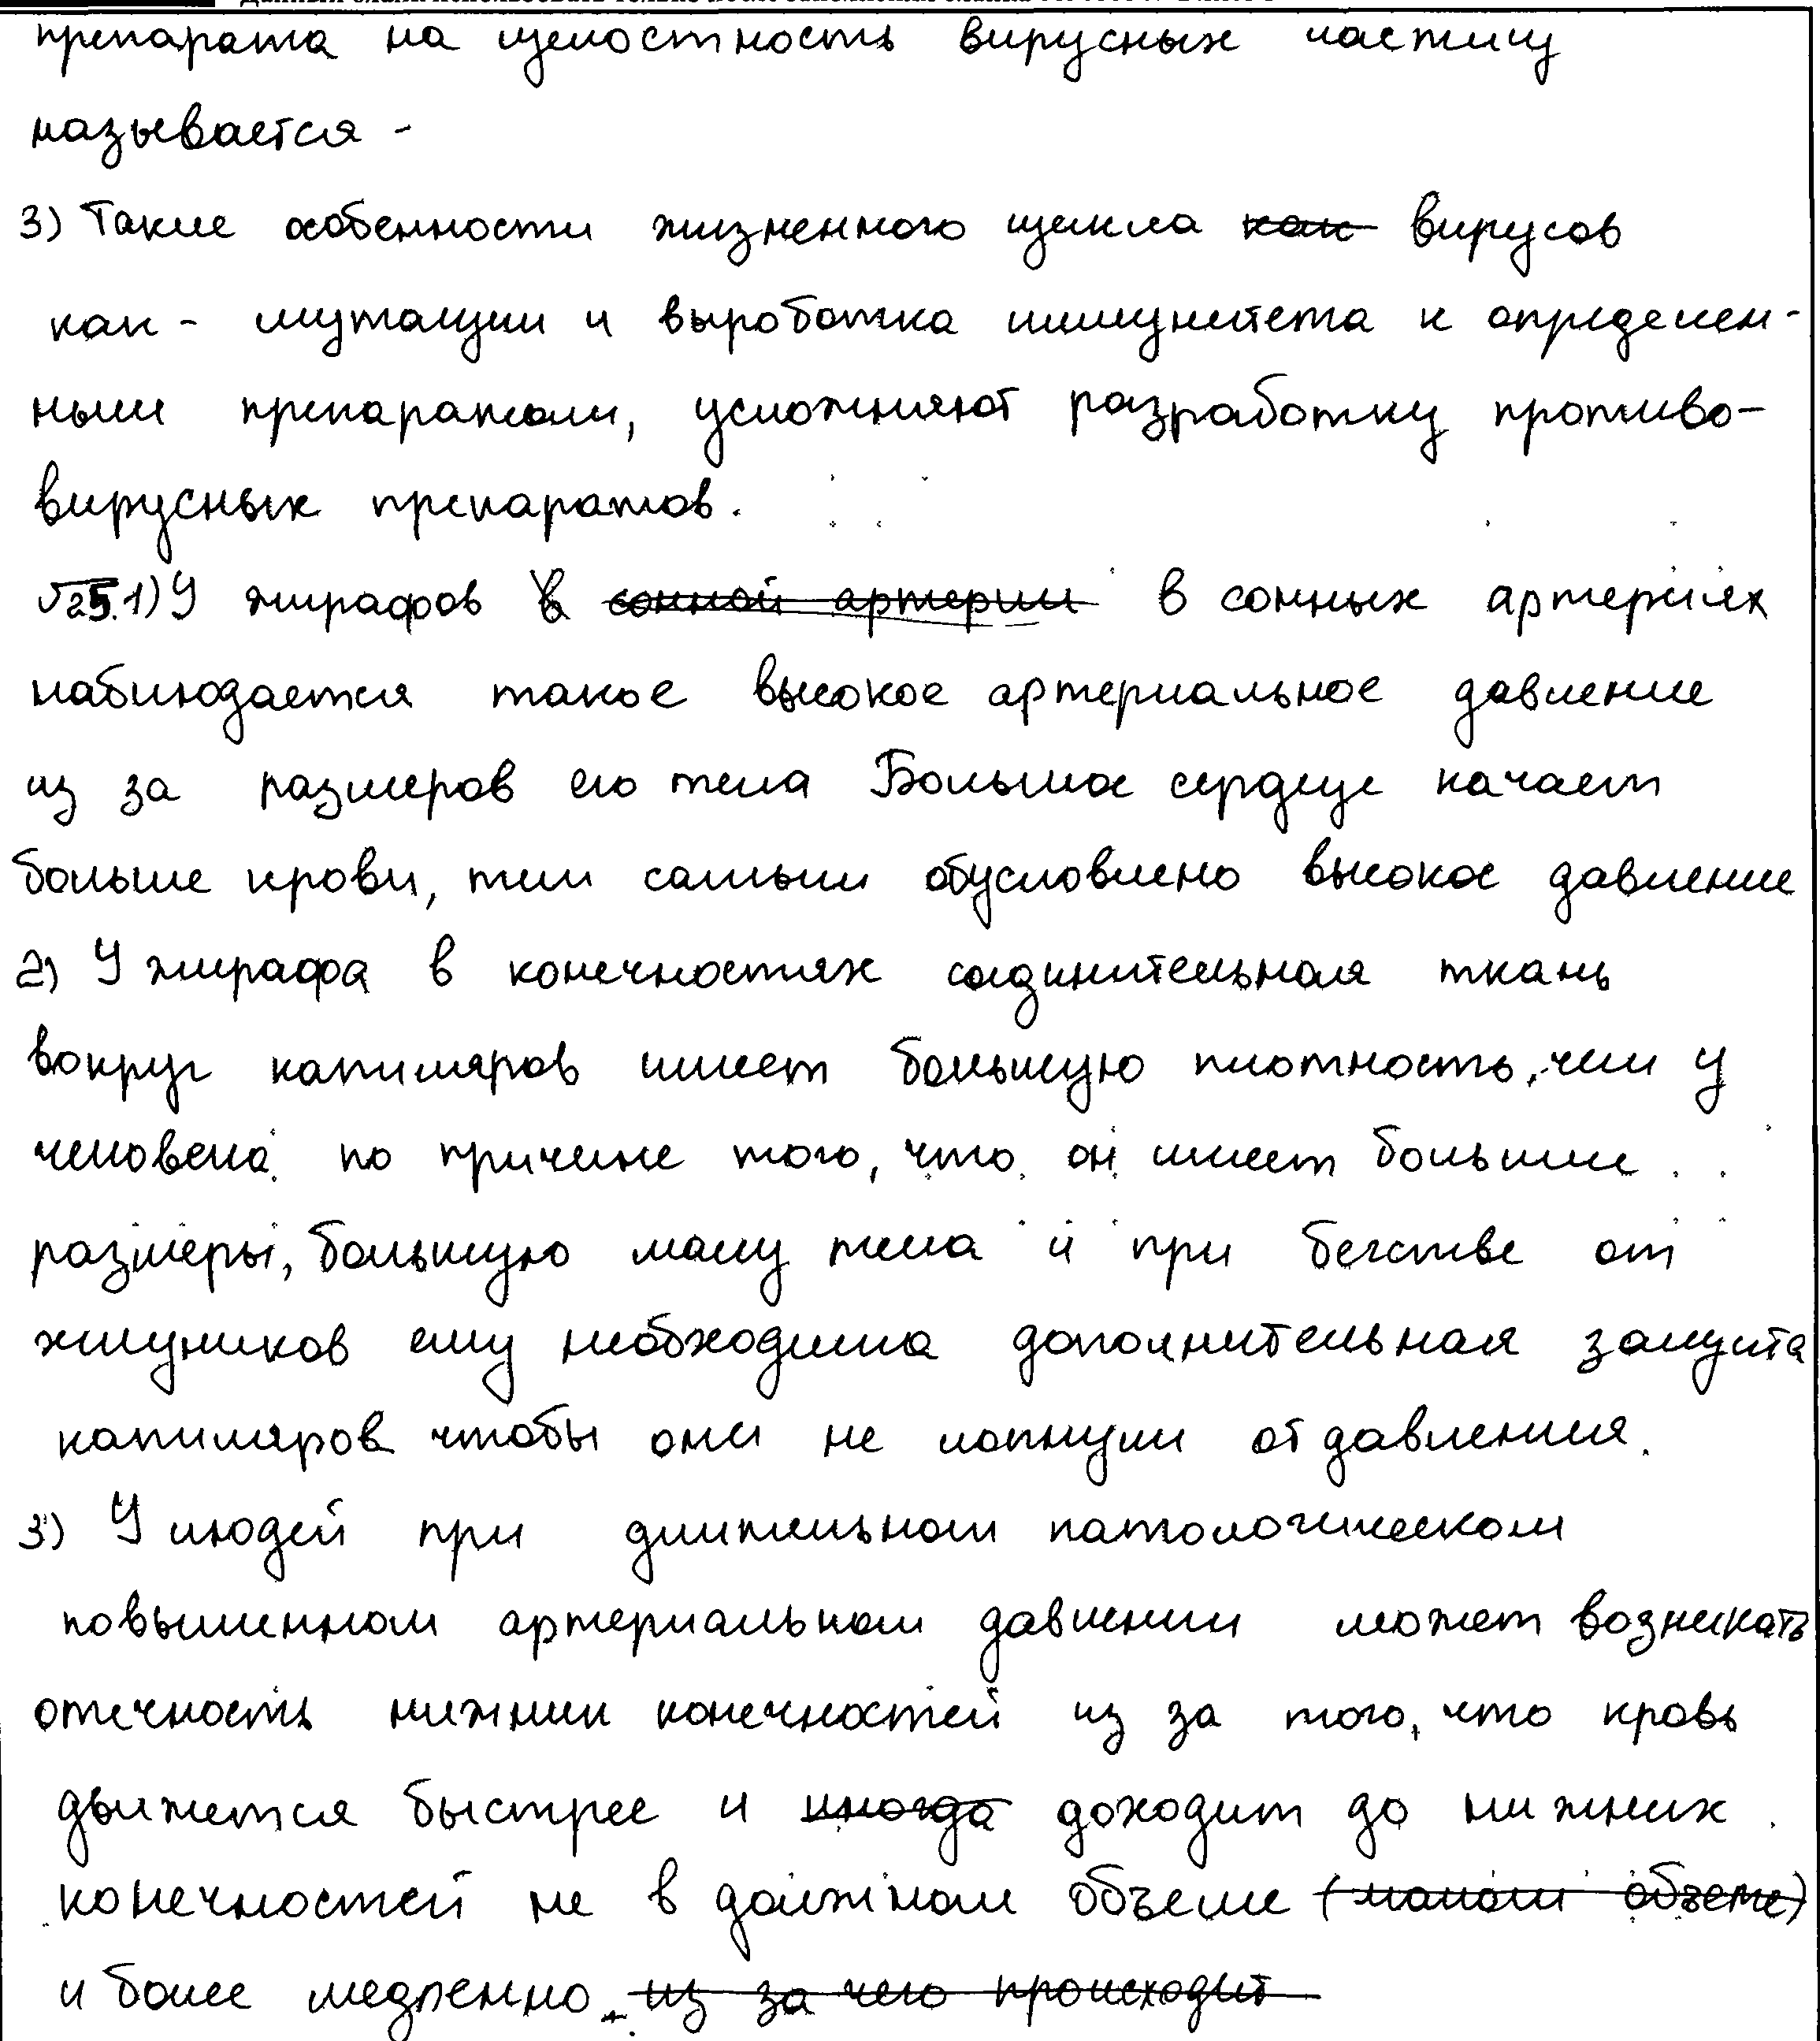 препарата на целостность вирусных частиц
называется -
3) Такие особенности жизненного цикла как вирусов
как - мутации и выроботка иммунитета к определен-
ным препаратам, усложняют разработку противо-
вирусных препаратов.
√25.1) У жирафов в сонной артерии в сонных артериях
наблюдается такое высокое артериальное давление
из за размеров его тела Большое сердце качает
больше крови, тем самым обусловлено высокое давление
2) У жирафа в конечностях соединительная ткань
вокруг капиляров имеет большую плотность, чем у
человека по причине того, что он имеет большие
размеры, большую массу тела и при бегстве от
хищников ему необходима дополнительная защита
капиляров чтобы они не лопнули от давления.
3) У людей при длительном патологическом
повышенном артериальном давлении может возникать
отечность нижних конечностей из за того, что кровь
движется быстрее и иногда доходит до нижних
конечностей не в должном объеме (малом объеме)
и более медленно. из за чего происходит